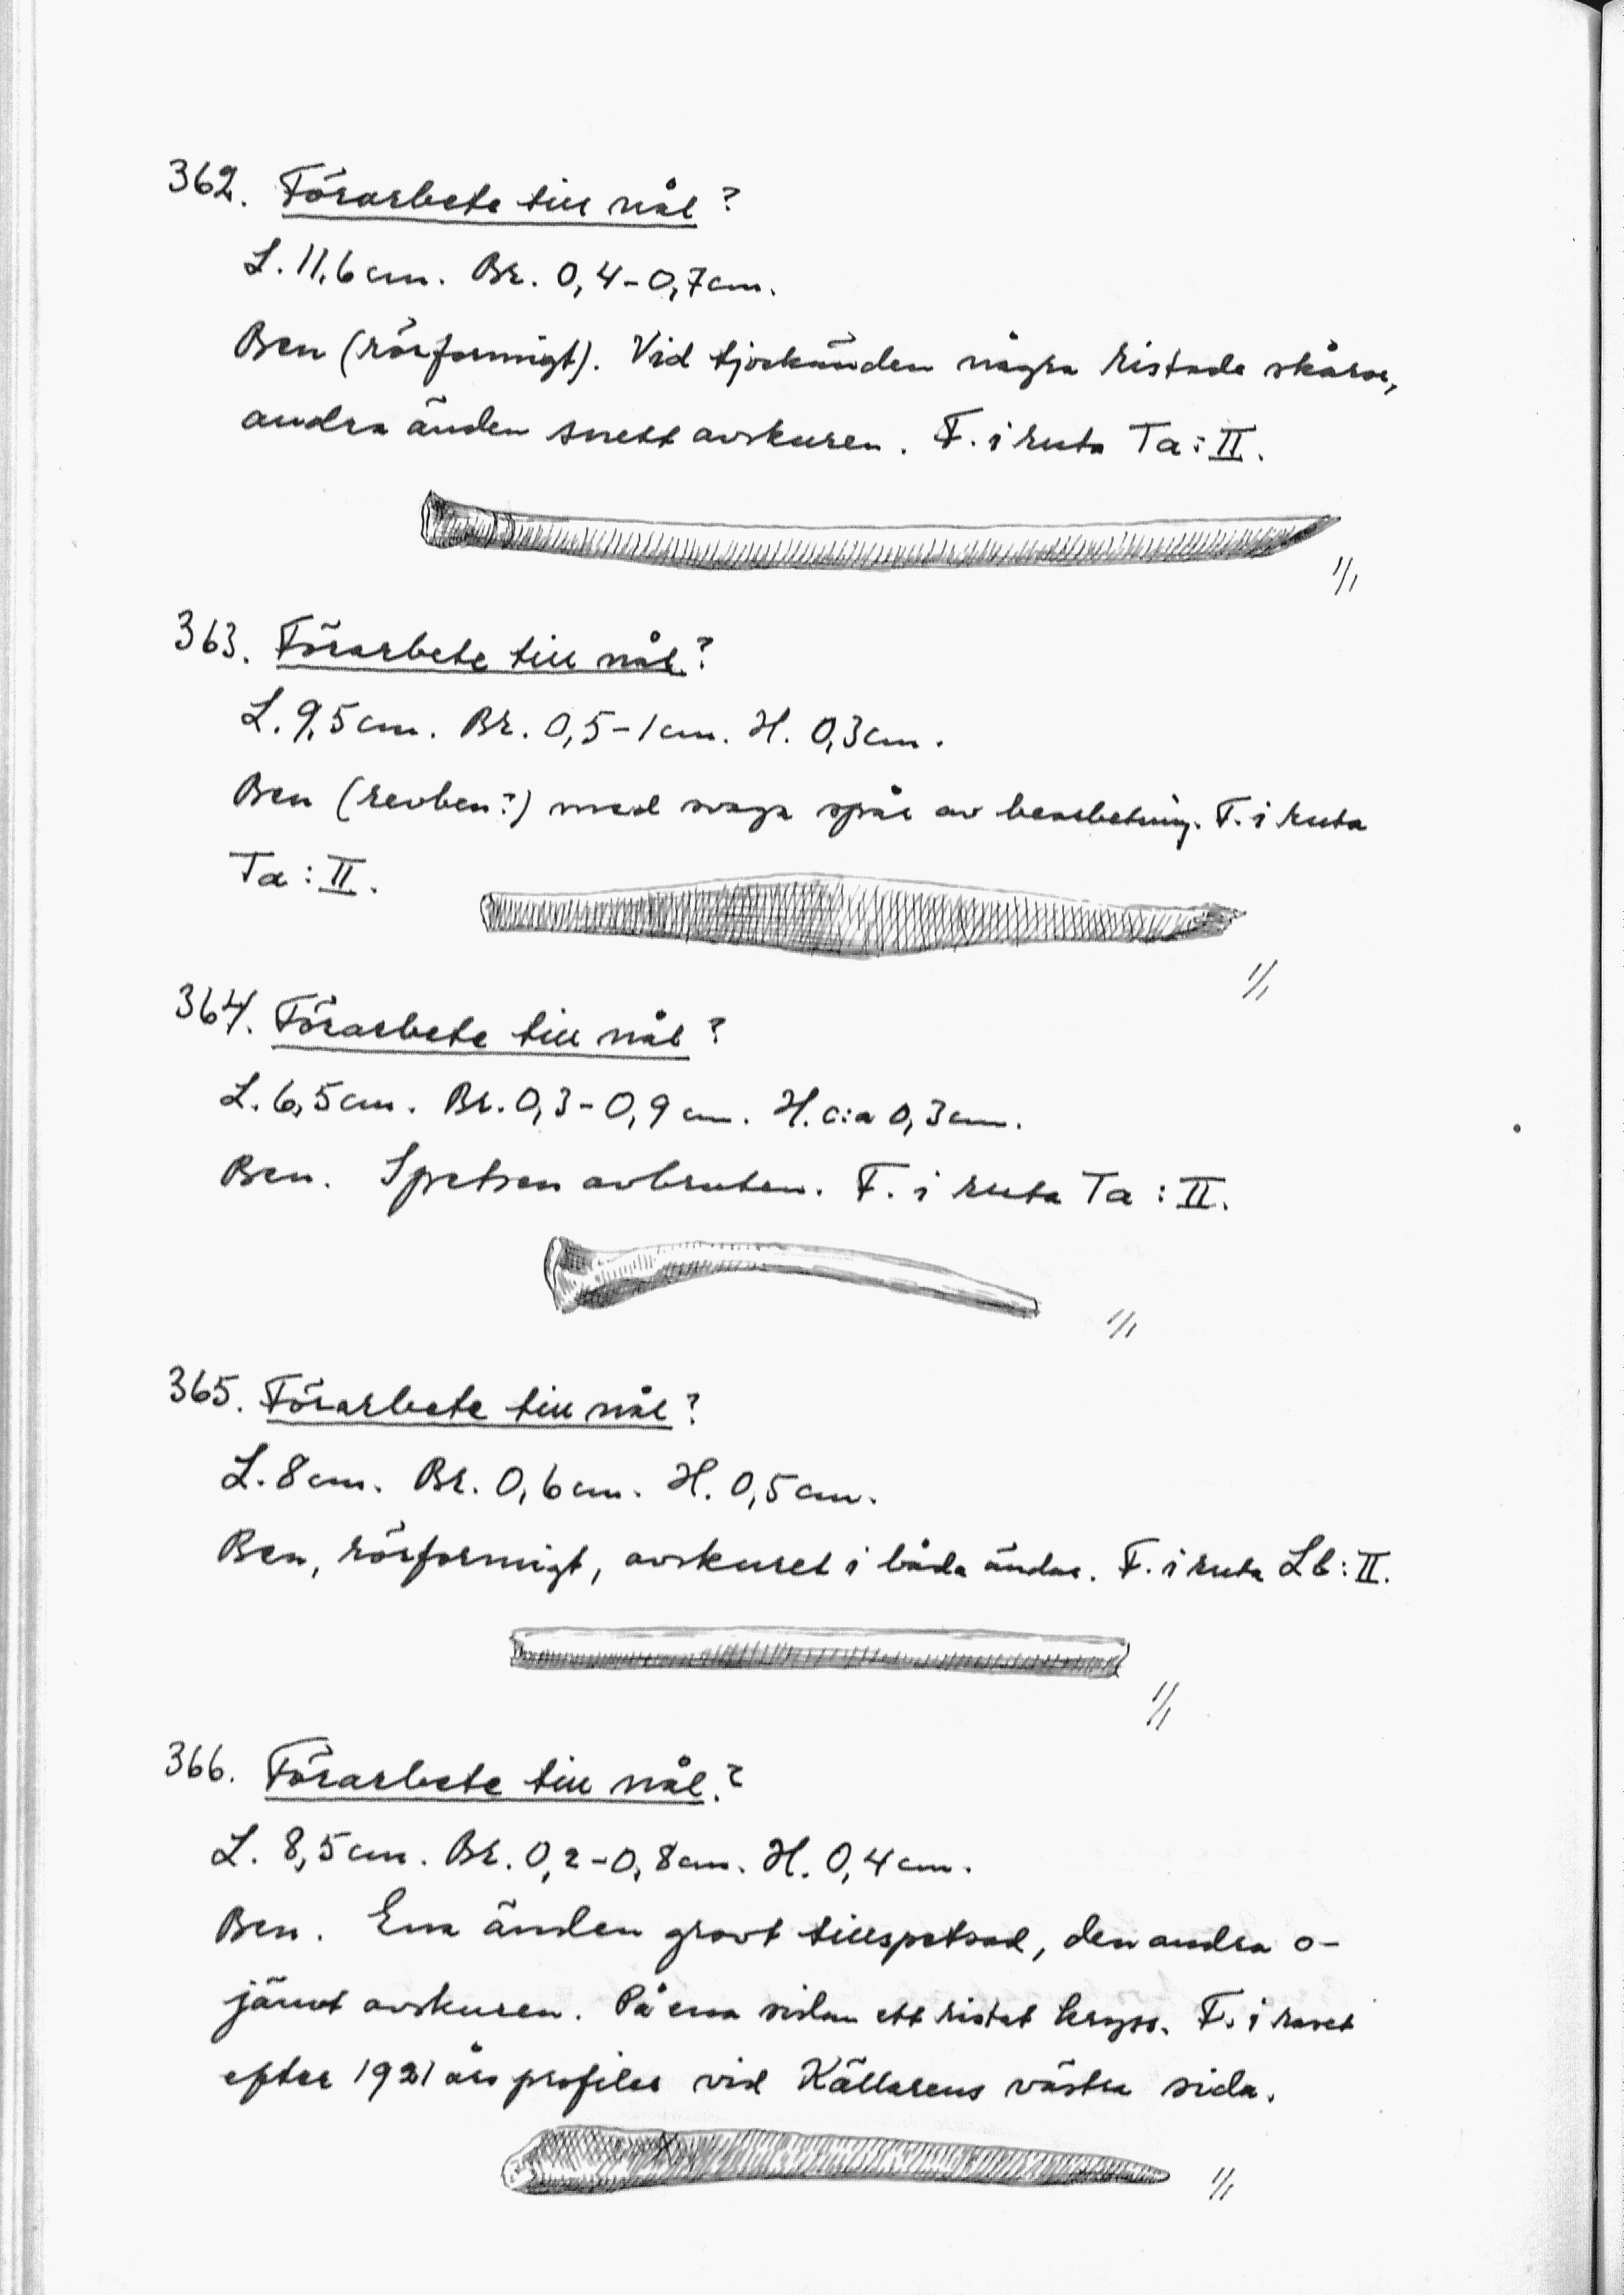 362. Förarbete till nål?
L. 11,6 cm. Br. 0,4-0,7 cm.
Ben (rörformigt). Vid tjockänden några ristade skåror,
andra änden snett avskuren. F. i ruta Ta:II.
1/1
363. Förarbete till nål?
L. 9,5 cm. Br. 0,5-1 cm. H. 0,3 cm.
Ben (revben?) med svaga spår av bearbetning. F. i ruta
Ta:II.
1/1
364. Förarbete till nål?
L. 6,5 cm. Br. 0,3-0,9 cm. H. c:a 0,3 cm.
Ben. Spetsen avbruten. F. i ruta Ta:II.
1/1
365. Förarbete till nål?
L. 8 cm. Br. 0,6 cm. H. 0,5 cm.
Ben, rörformigt, avskuret i båda ändar. F. i ruta Lb:II.
1/1
366. Förarbete till nål?
L. 8,5 cm. Br. 0,2-0,8 cm. H. 0,4 cm.
Ben. Ena änden grovt tillspetsad, den andra o-
jämnt avskuren. På ena sidan ett ristat kryss. F. i raset
efter 1921 års profiler vid Källarens västra sida.
1/1